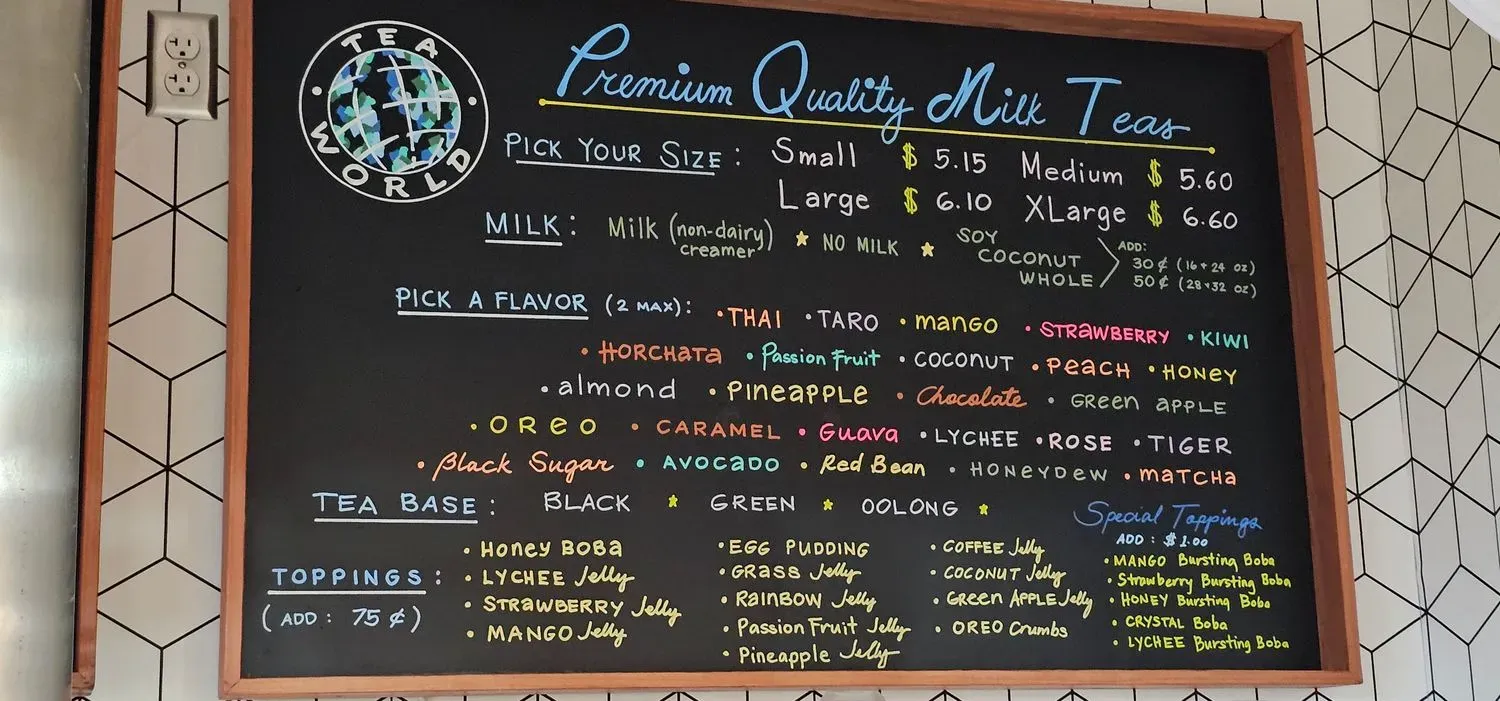 TEA WORLD
Premium Quality Milk Teas
PICK YOUR SIZE: Small $ 5.15 Medium $ 5.60
Large $ 6.10 XLarge $ 6.60
MILK: Milk (non-dairy creamer) ★ NO MILK ★ SOY COCONUT WHOLE > ADD:
30¢ (16+24 oz)
50¢ (28+32 oz)
PICK A FLAVOR (2 MAX): •THAI •TARO •mango •STRAWBERRY •KIWI
•HORCHATA •Passion Fruit •COCONUT •Peach •HONEY
•almond •PINEAPPLE •Chocolate •GReen aPPLE
•OReo •CARAMEL •Guava •LYCHEE •ROSE •TIGER
•Black Sugar •AVOCADO •Red Bean •HONEYDEW •matcha
TEA BASE: BLACK ★ GREEN ★ OOLONG ★
TOPPINGS:
(ADD: 75¢)
•Honey BOBA
•LYCHEE Jelly
•STRAWBERRY Jelly
•MANGO Jelly
•EGG PUDDING
•GRASS Jelly
•Rainbow Jelly
•Passion Fruit Jelly
•Pineapple Jelly
•COFFEE Jelly
•COCONUT Jelly
•Green APPLE Jelly
•OREO Crumbs
Special Toppings
ADD: $1.00
•MANGO Bursting Boba
•Strawberry Bursting Boba
•HONEY Bursting Boba
•CRYSTAL Boba
•LYCHEE Bursting Boba